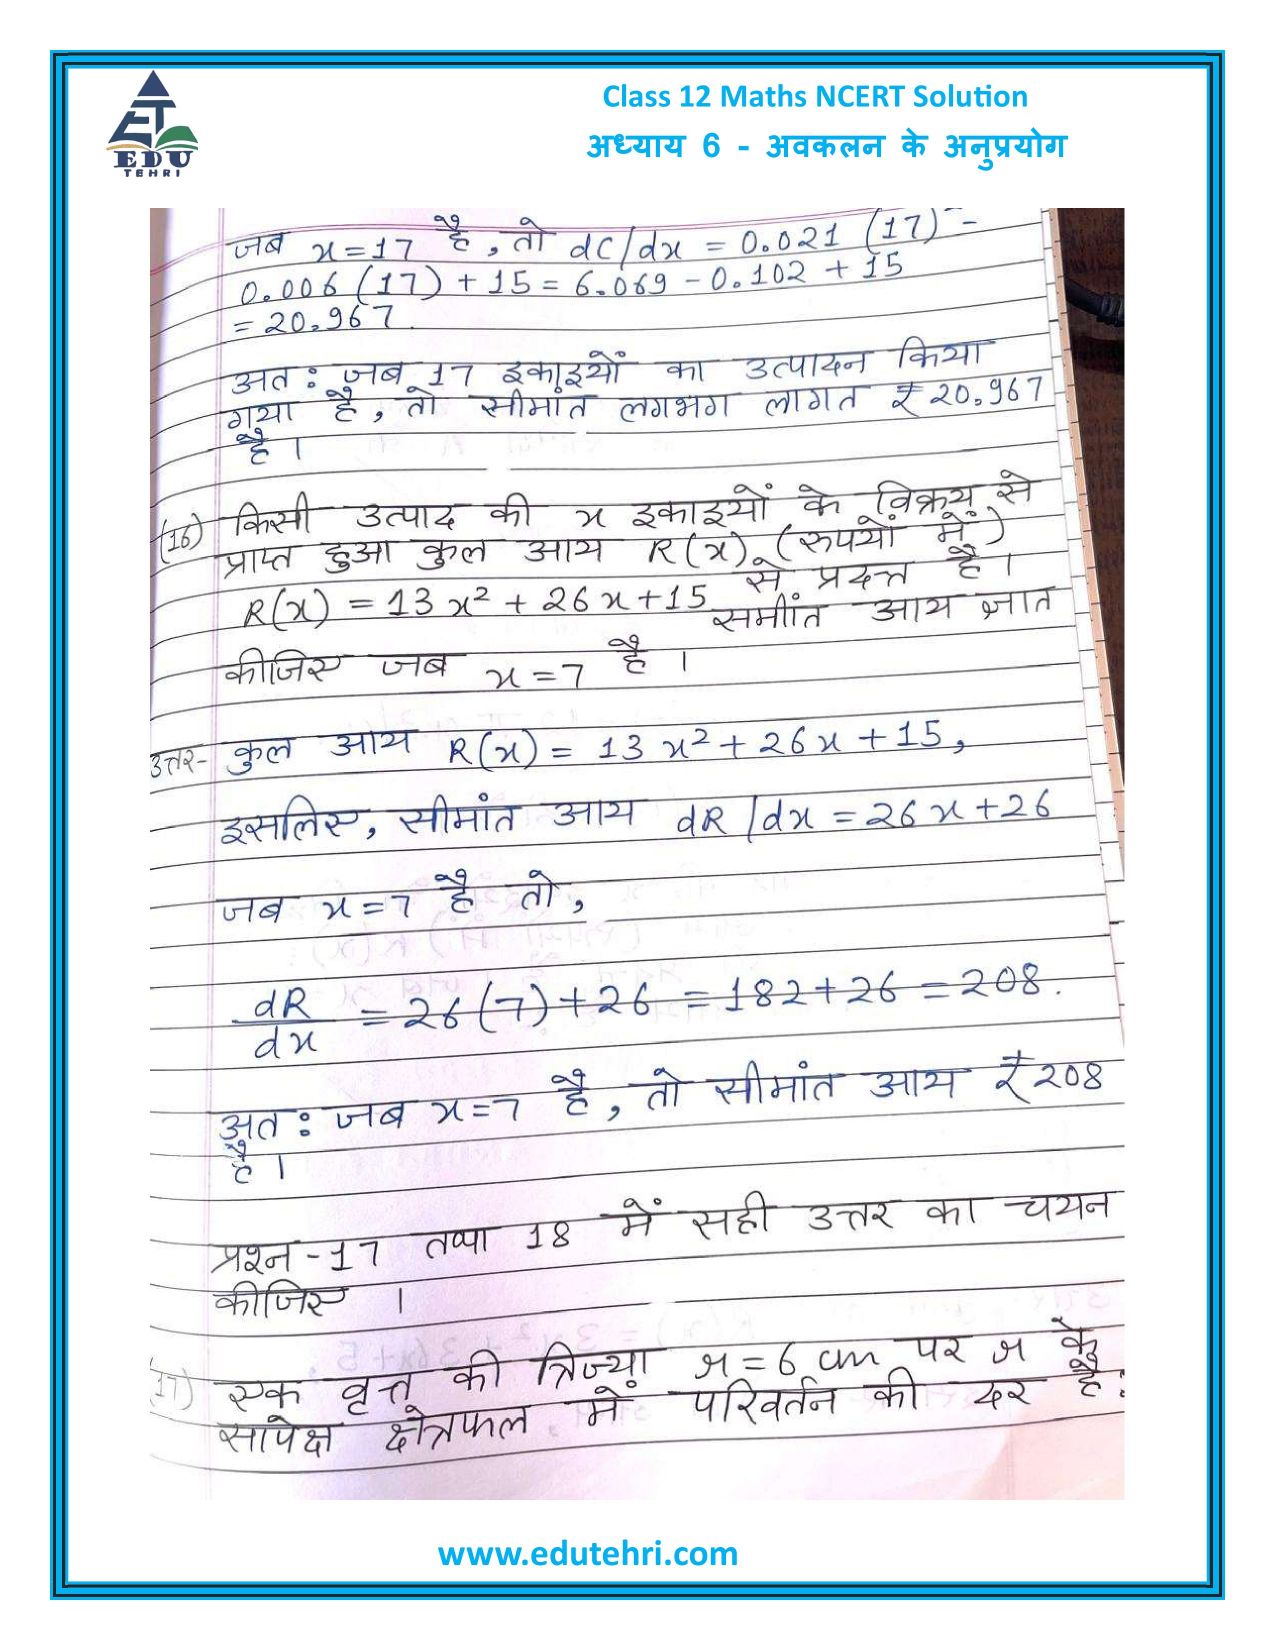 ET
EDU
TEHRI
Class 12 Maths NCERT Solution
अध्याय 6 - अवकलन के अनुप्रयोग
जब x=17 है, तो dC/dx = 0.021 (17)² -
0.006 (17) + 15 = 6.069 - 0.102 + 15
= 20.967.
अत: जब 17 इकाइयों का उत्पादन किया
गया है, तो सीमांत लगभग लागत ₹ 20.967
है।
(16) किसी उत्पाद की x इकाइयों के विक्रय से
प्राप्त हुआ कुल आय R(x) (रुपयों में)
R(x) = 13x² + 26x + 15 से प्रदत्त है।
समीांत आय ज्ञात
कीजिए जब x = 7 है।
उत्तर- कुल आय R(x) = 13x² + 26x + 15,
इसलिए, सीमांत आय dR/dx = 26x + 26
जब x = 7 है तो,
dR/dx = 26(7) + 26 = 182 + 26 = 208.
अत: जब x = 7 है, तो सीमांत आय ₹ 208
है।
प्रश्न-17 तथा 18 में सही उत्तर का चयन
कीजिए।
(17) एक वृत्त की त्रिज्या r = 6 cm पर r के
सापेक्ष क्षेत्रफल में परिवर्तन की दर है:
www.edutehri.com